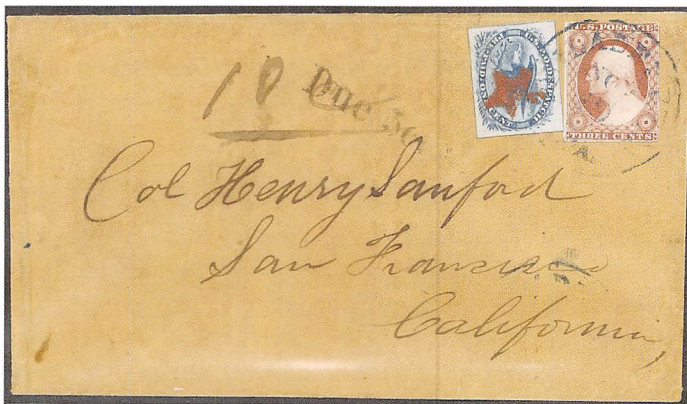 U.S. POSTAGE
THREE CENTS
10 Due
Col Henry Sanford
San Francisco
California,